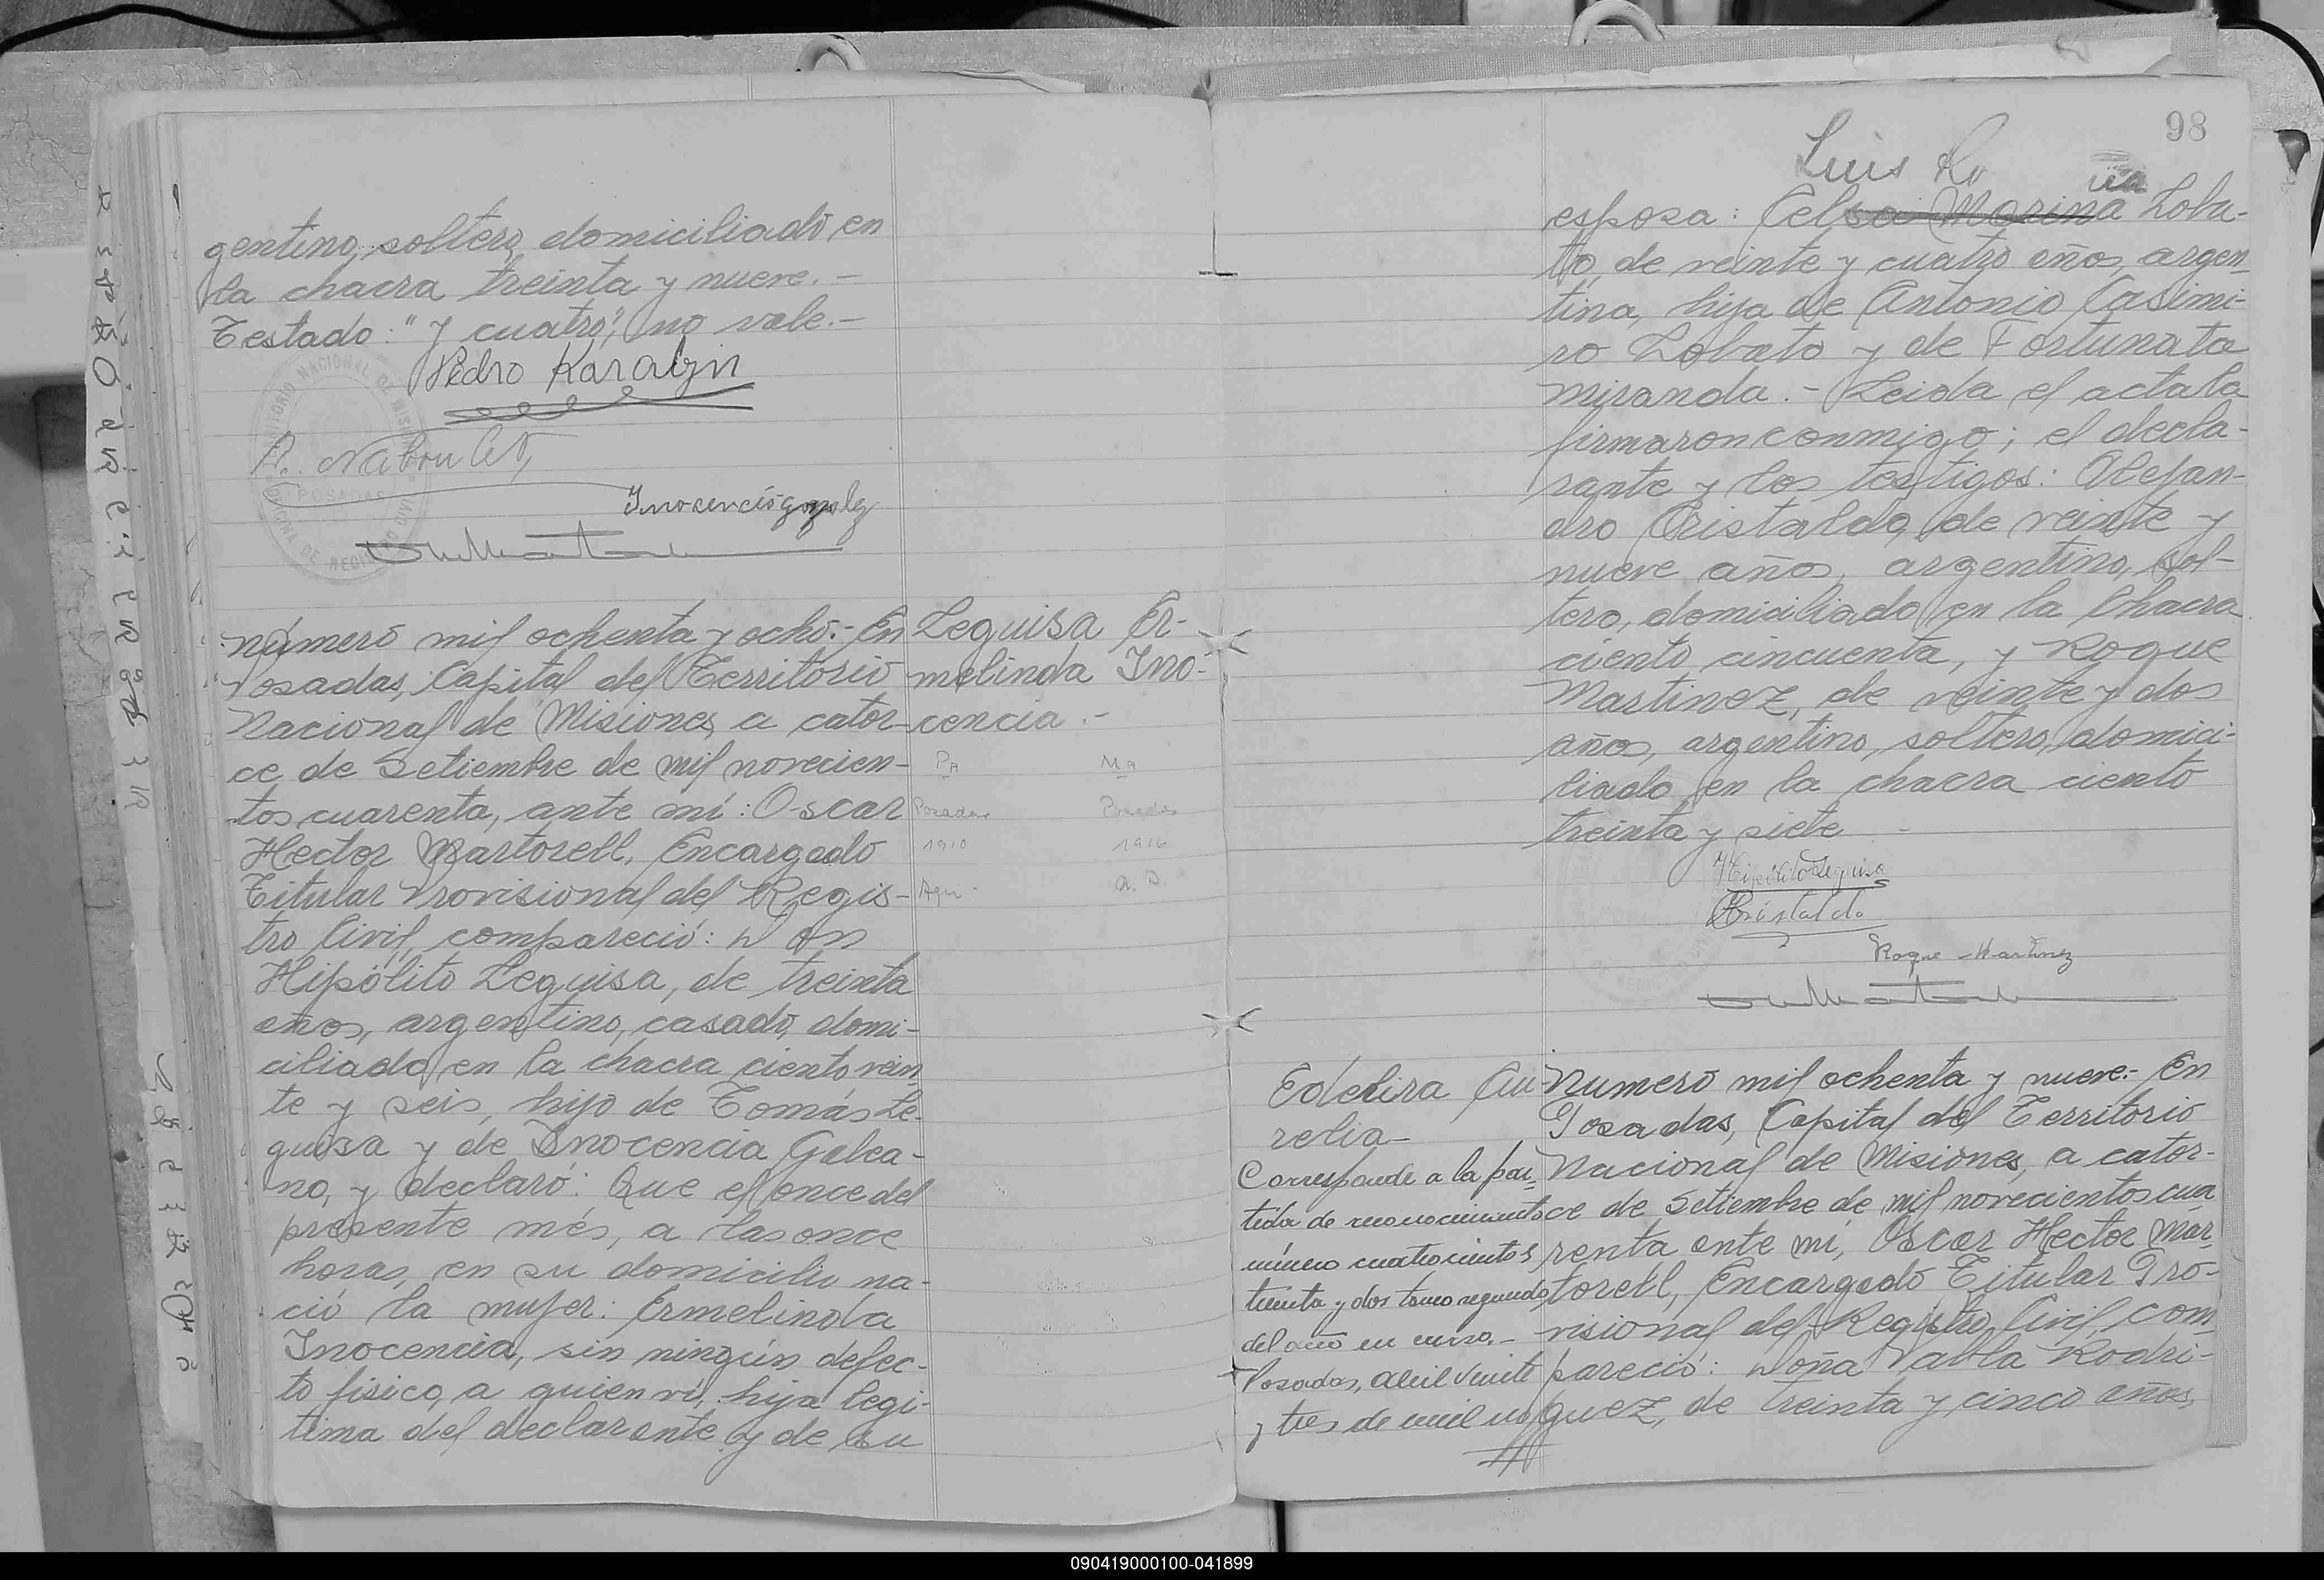 gentino, soltero, domiciliado en
la chacra treinta y nueve.-
Testado: "y cuatro", no vale.-
Pedro Karabin
Inocencio Gonzalez
POSADAS
Número mil ochenta y ocho.- En
Posadas, Capital del Territorio
Nacional de Misiones, a cator-
ce de Setiembre de mil novecien-
tos cuarenta, ante mí: Oscar
Hector Martorell, Encargado
Titular Provisional del Regis-
tro Civil, compareció: Don
Hipólito Leguisa, de treinta
años, argentino, casado, domi-
ciliado en la chacra ciento vein
te y seis, hijo de Tomás Le-
guisa y de Inocencia Galea-
no, y declaró: Que el once del
presente més, a las once
horas, en su domicilio na-
ció la mujer: Ermelinda
Inocencia, sin ningún defec-
to físico, a quien ví, hija legi-
tima del declarante y de su
Leguisa Er-
melinda Ino-
cencia.-
Pa Ma
Posadas Posadas
1910 1916
Agu- Q. D.
98
Luis
esposa: Celsa Morina Loba-
to, de veinte y cuatro años, argen
tina, hija de Antonio Casimi-
ro Lobato y de Fortunata
Miranda.- Leida el acta la
firmaron conmigo; el decla-
rante y los testigos: Alejan-
dro Cristaldo, de veinte y
nueve años, argentino, sol-
tero, domiciliado en la Chacra
ciento cincuenta, y Roque
Martinez, de veinte y dos
años, argentino, soltero, domici-
liado en la chacra ciento
treinta y siete
Hipólito Leguisa
Cristaldo
Roque Martinez
Edelira Au-
relia-
Corresponde a la par-
tida de reconocimiento
número cuatrocientos
treinta y dos tomo segundo
del año en curso.-
Posadas, abril veinte
y tres de mil no
Numero mil ochenta y nueve.- En
Posadas, Capital del Territorio
Nacional de Misiones, a cator-
ce de Setiembre de mil novecientos cua
renta ante mi, Oscar Hector Mar
torell, Encargado Titular Pro-
visional del Registro Civil, com
pareció: Doña Pabla Rodri-
guez, de treinta y cinco años,
090419000100-041899